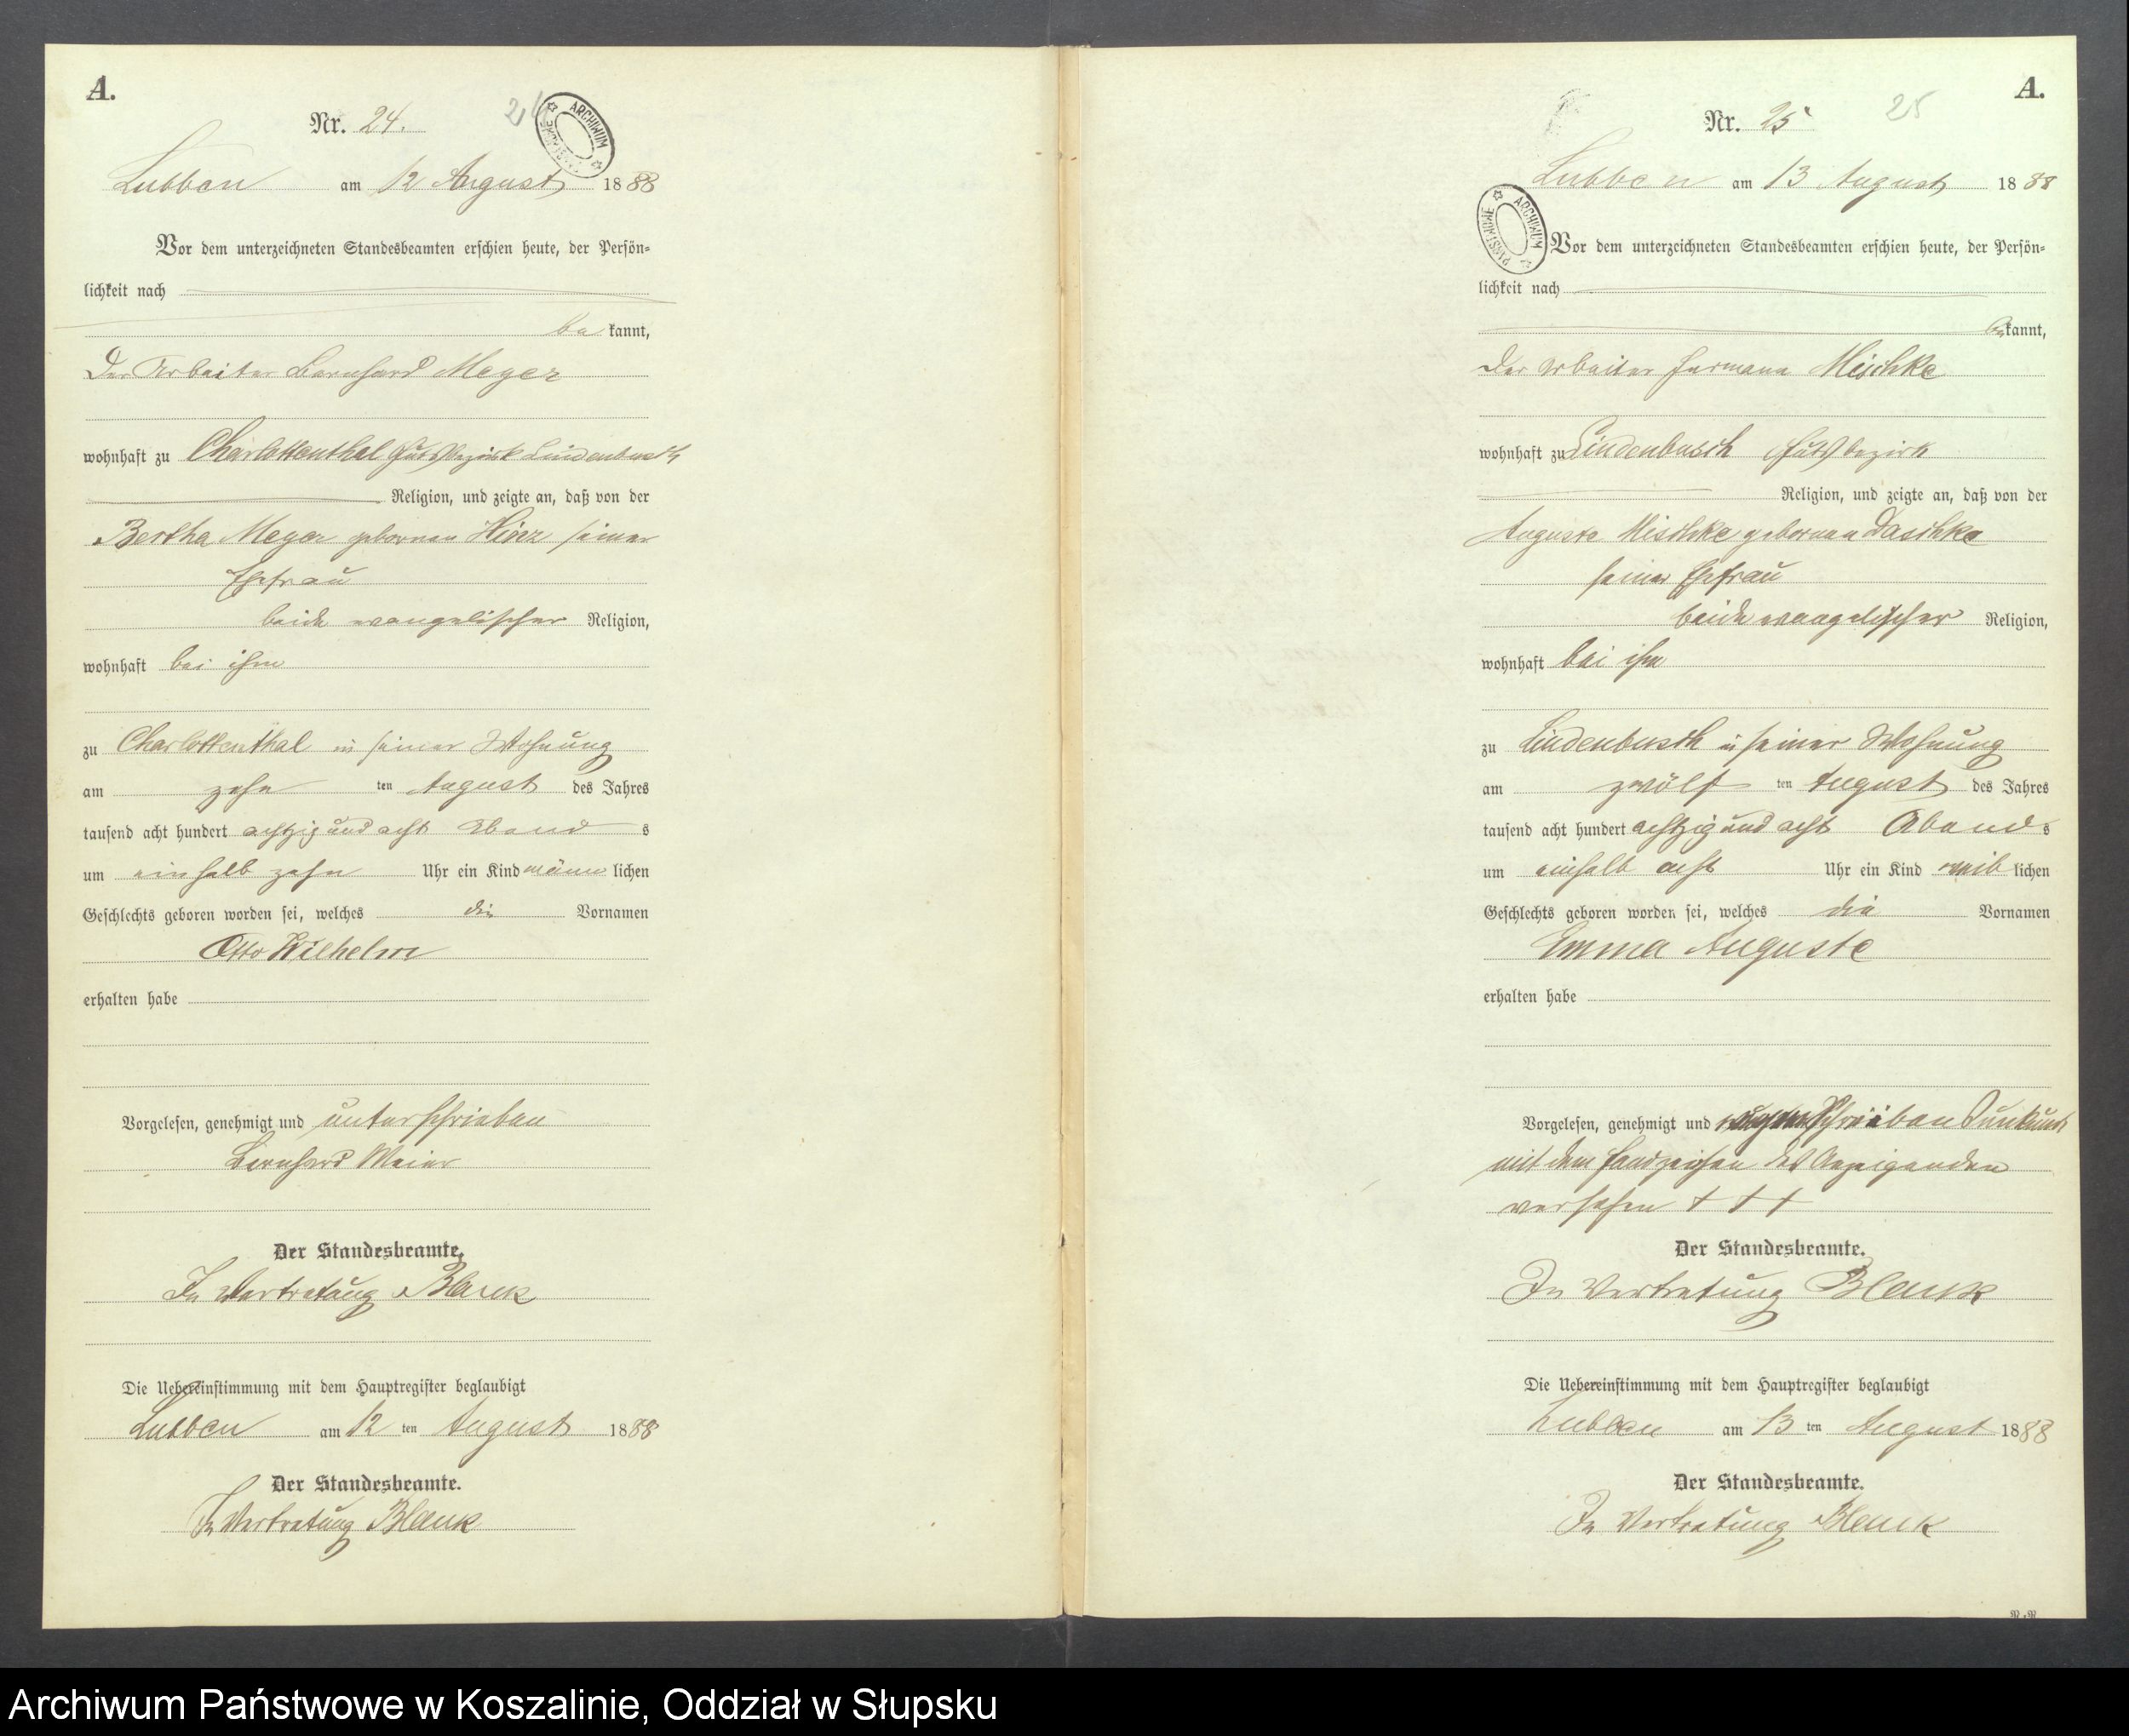 A.
Nr. 24.
24
ARCHIWUM PAŃSTWOWE
Lubben am 12 August 1888
Vor dem unterzeichneten Standesbeamten erschien heute, der Persön-
lichkeit nach
be kannt,
Der Arbeiter Bernhard Meyer
wohnhaft zu Charlottenthal Gutsbezirk Lindenbusch
Religion, und zeigte an, daß von der
Bertha Meyer geborenen seiner
Ehefrau
beide evangelischer Religion,
wohnhaft bei ihm
zu Charlottenthal in seiner Wohnung
am zehn ten August des Jahres
tausend acht hundert achtzig und acht Abend s
um einhalb zehn Uhr ein Kind männ lichen
Geschlechts geboren worden sei, welches die Vornamen
Otto Wilhelm
erhalten habe
Vorgelesen, genehmigt und unterschrieben
Bernhard Meier
Der Standesbeamte.
In Vertretung Blank
Die Uebereinstimmung mit dem Hauptregister beglaubigt
Lubben am 12 ten August 1888
Der Standesbeamte.
In Vertretung Blank
A.
Nr. 25
25
ARCHIWUM PAŃSTWOWE
Lubben am 13 August 1888
Vor dem unterzeichneten Standesbeamten erschien heute, der Persön-
lichkeit nach
be kannt,
Der Arbeiter Hermann Mischke
wohnhaft zu Lindenbusch Gutsbezirk
Religion, und zeigte an, daß von der
Auguste Mischke geborenen Daschke
seiner Ehefrau
beide evangelischer Religion,
wohnhaft bei ihm
zu Lindenbusch in seiner Wohnung
am zwölf ten August des Jahres
tausend acht hundert achtzig und acht Abend s
um einhalb acht Uhr ein Kind weib lichen
Geschlechts geboren worden sei, welches die Vornamen
Emma Auguste
erhalten habe
Vorgelesen, genehmigt und
mit dem Handzeichen des Anzeigenden
versehen + + +
Der Standesbeamte.
In Vertretung Blank
Die Uebereinstimmung mit dem Hauptregister beglaubigt
Lubben am 13 ten August 1888
Der Standesbeamte.
In Vertretung Blank
Archiwum Państwowe w Koszalinie, Oddział w Słupsku